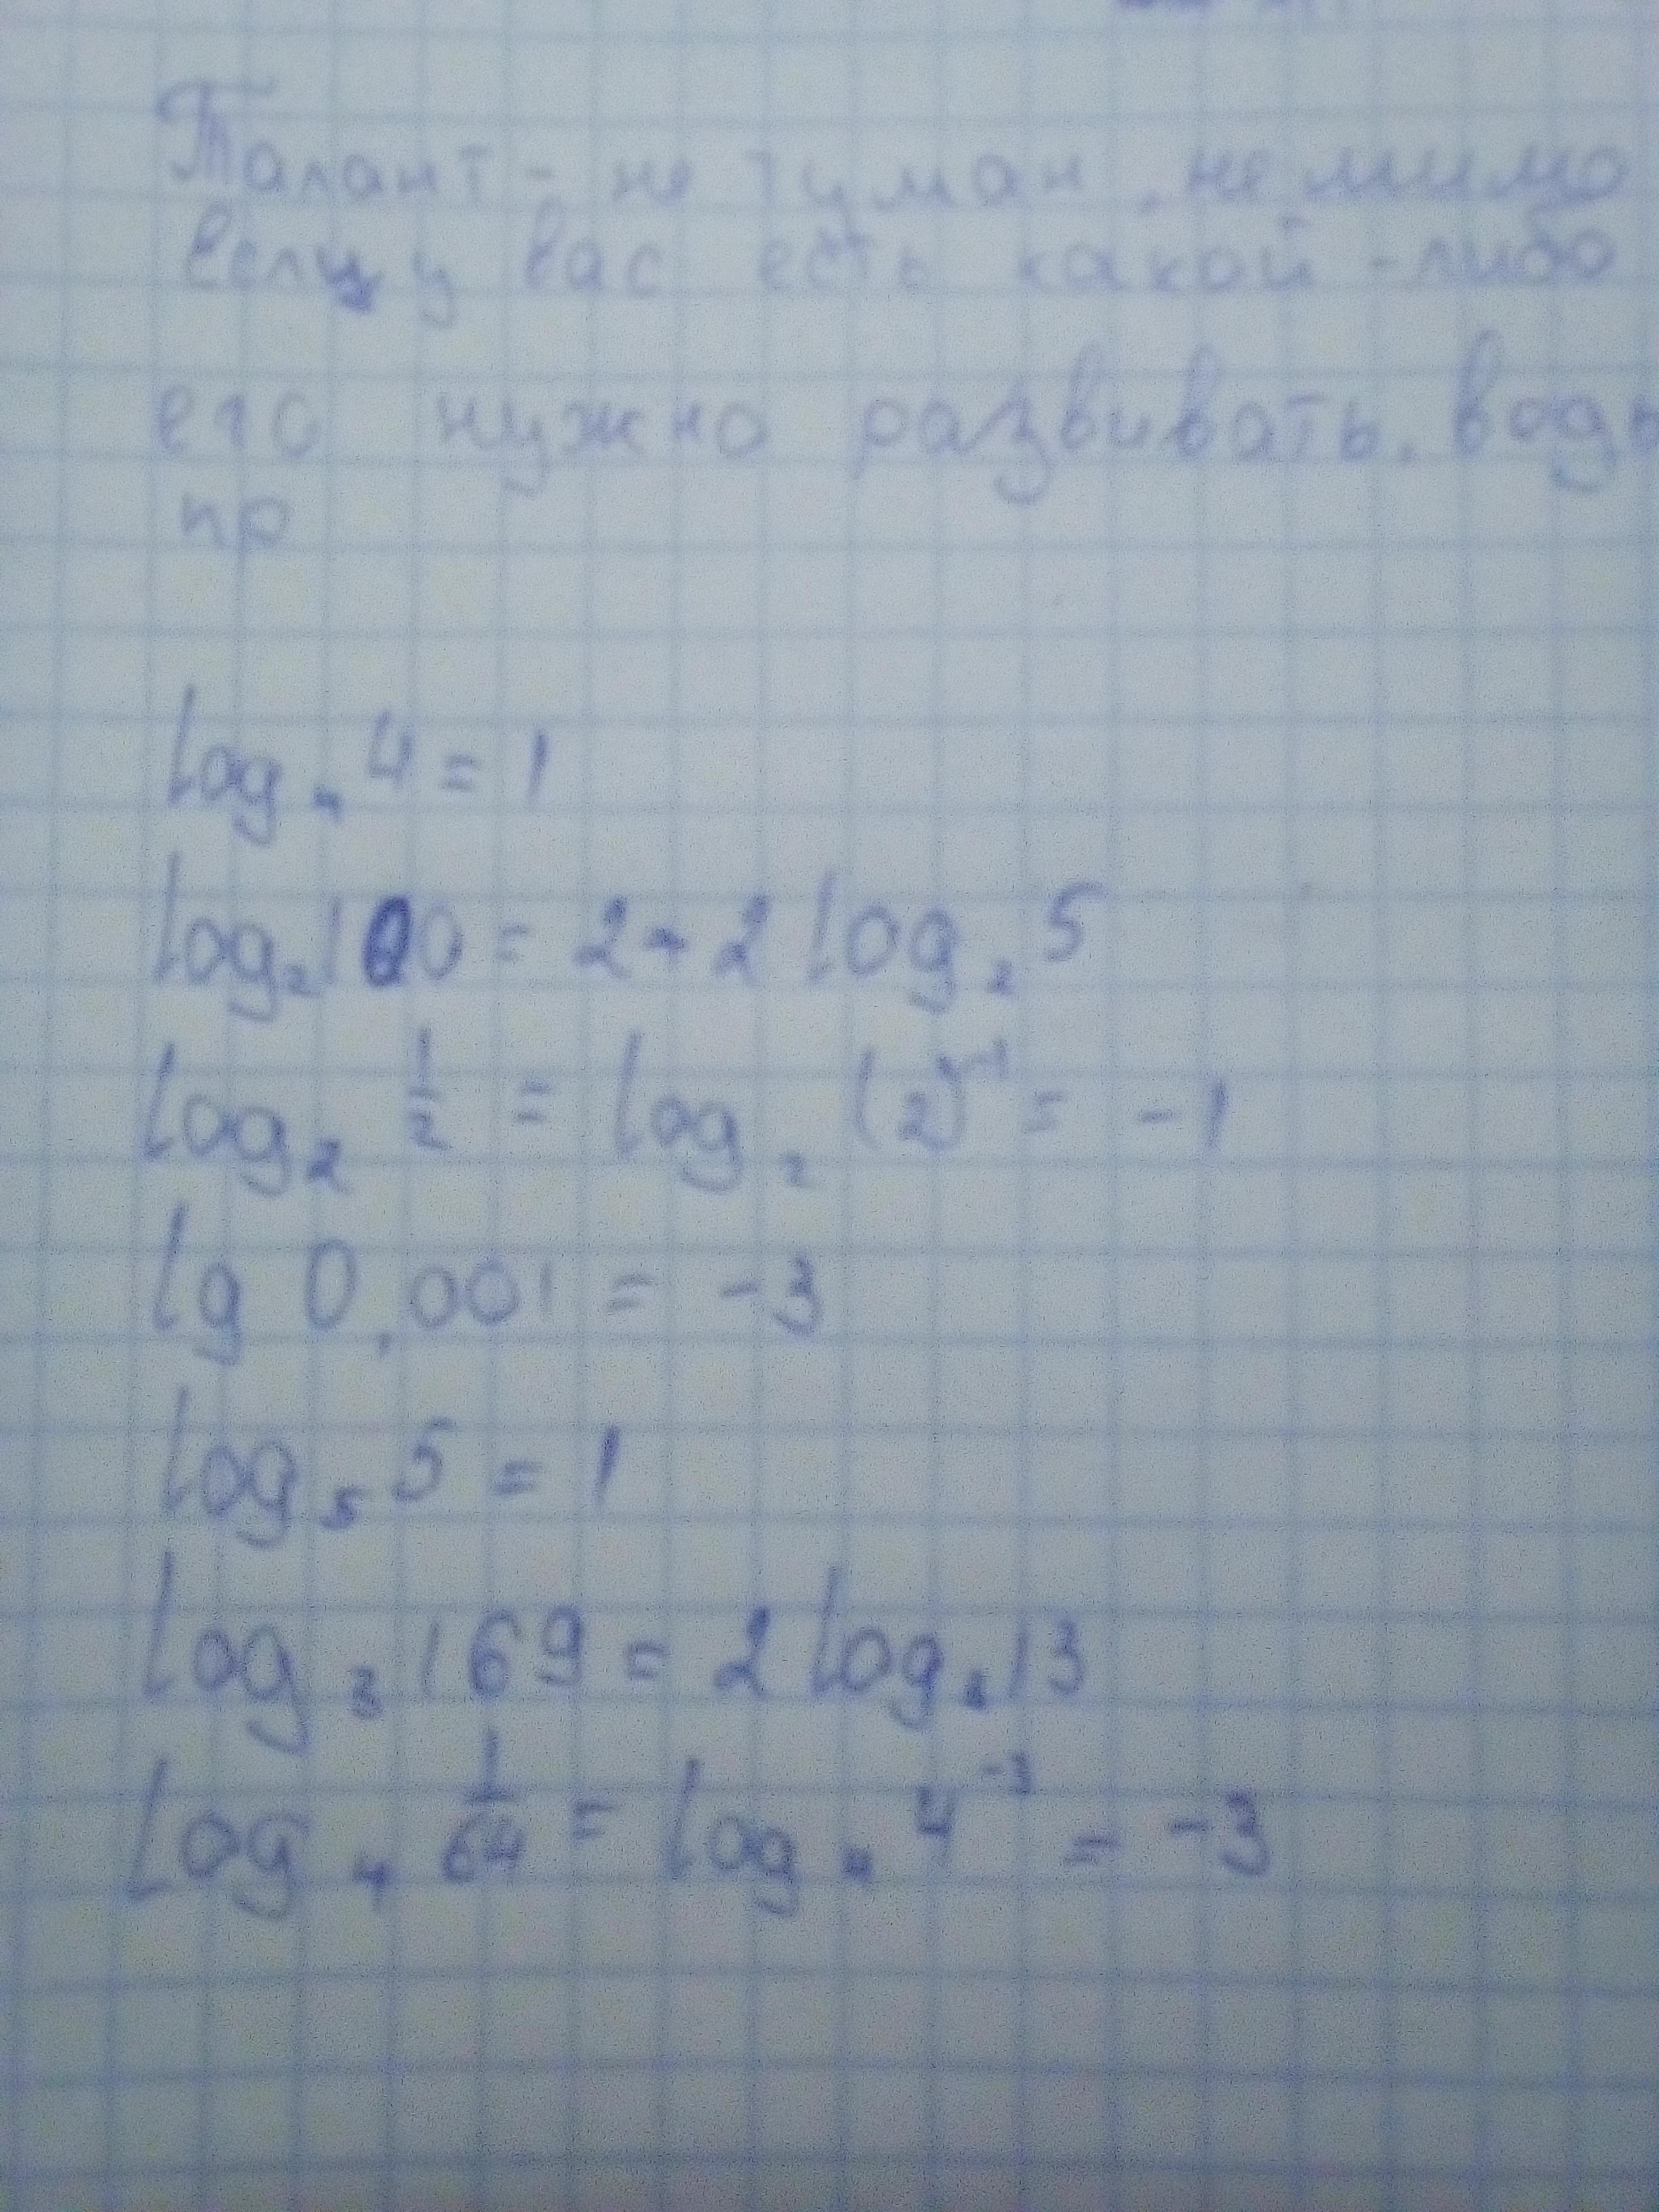 Талант - не туман, не мимо
если у вас есть какой-либо
его нужно развивать.
пр
log₄ 4 = 1
log₂ 100 = 2 + 2 log₂ 5
log₂ 1/2 = log₂ (2)⁻¹ = -1
lg 0,001 = -3
log₅ 5 = 1
log₃ 169 = 2 log₃ 13
log₄ 1/64 = log₄ 4⁻³ = -3